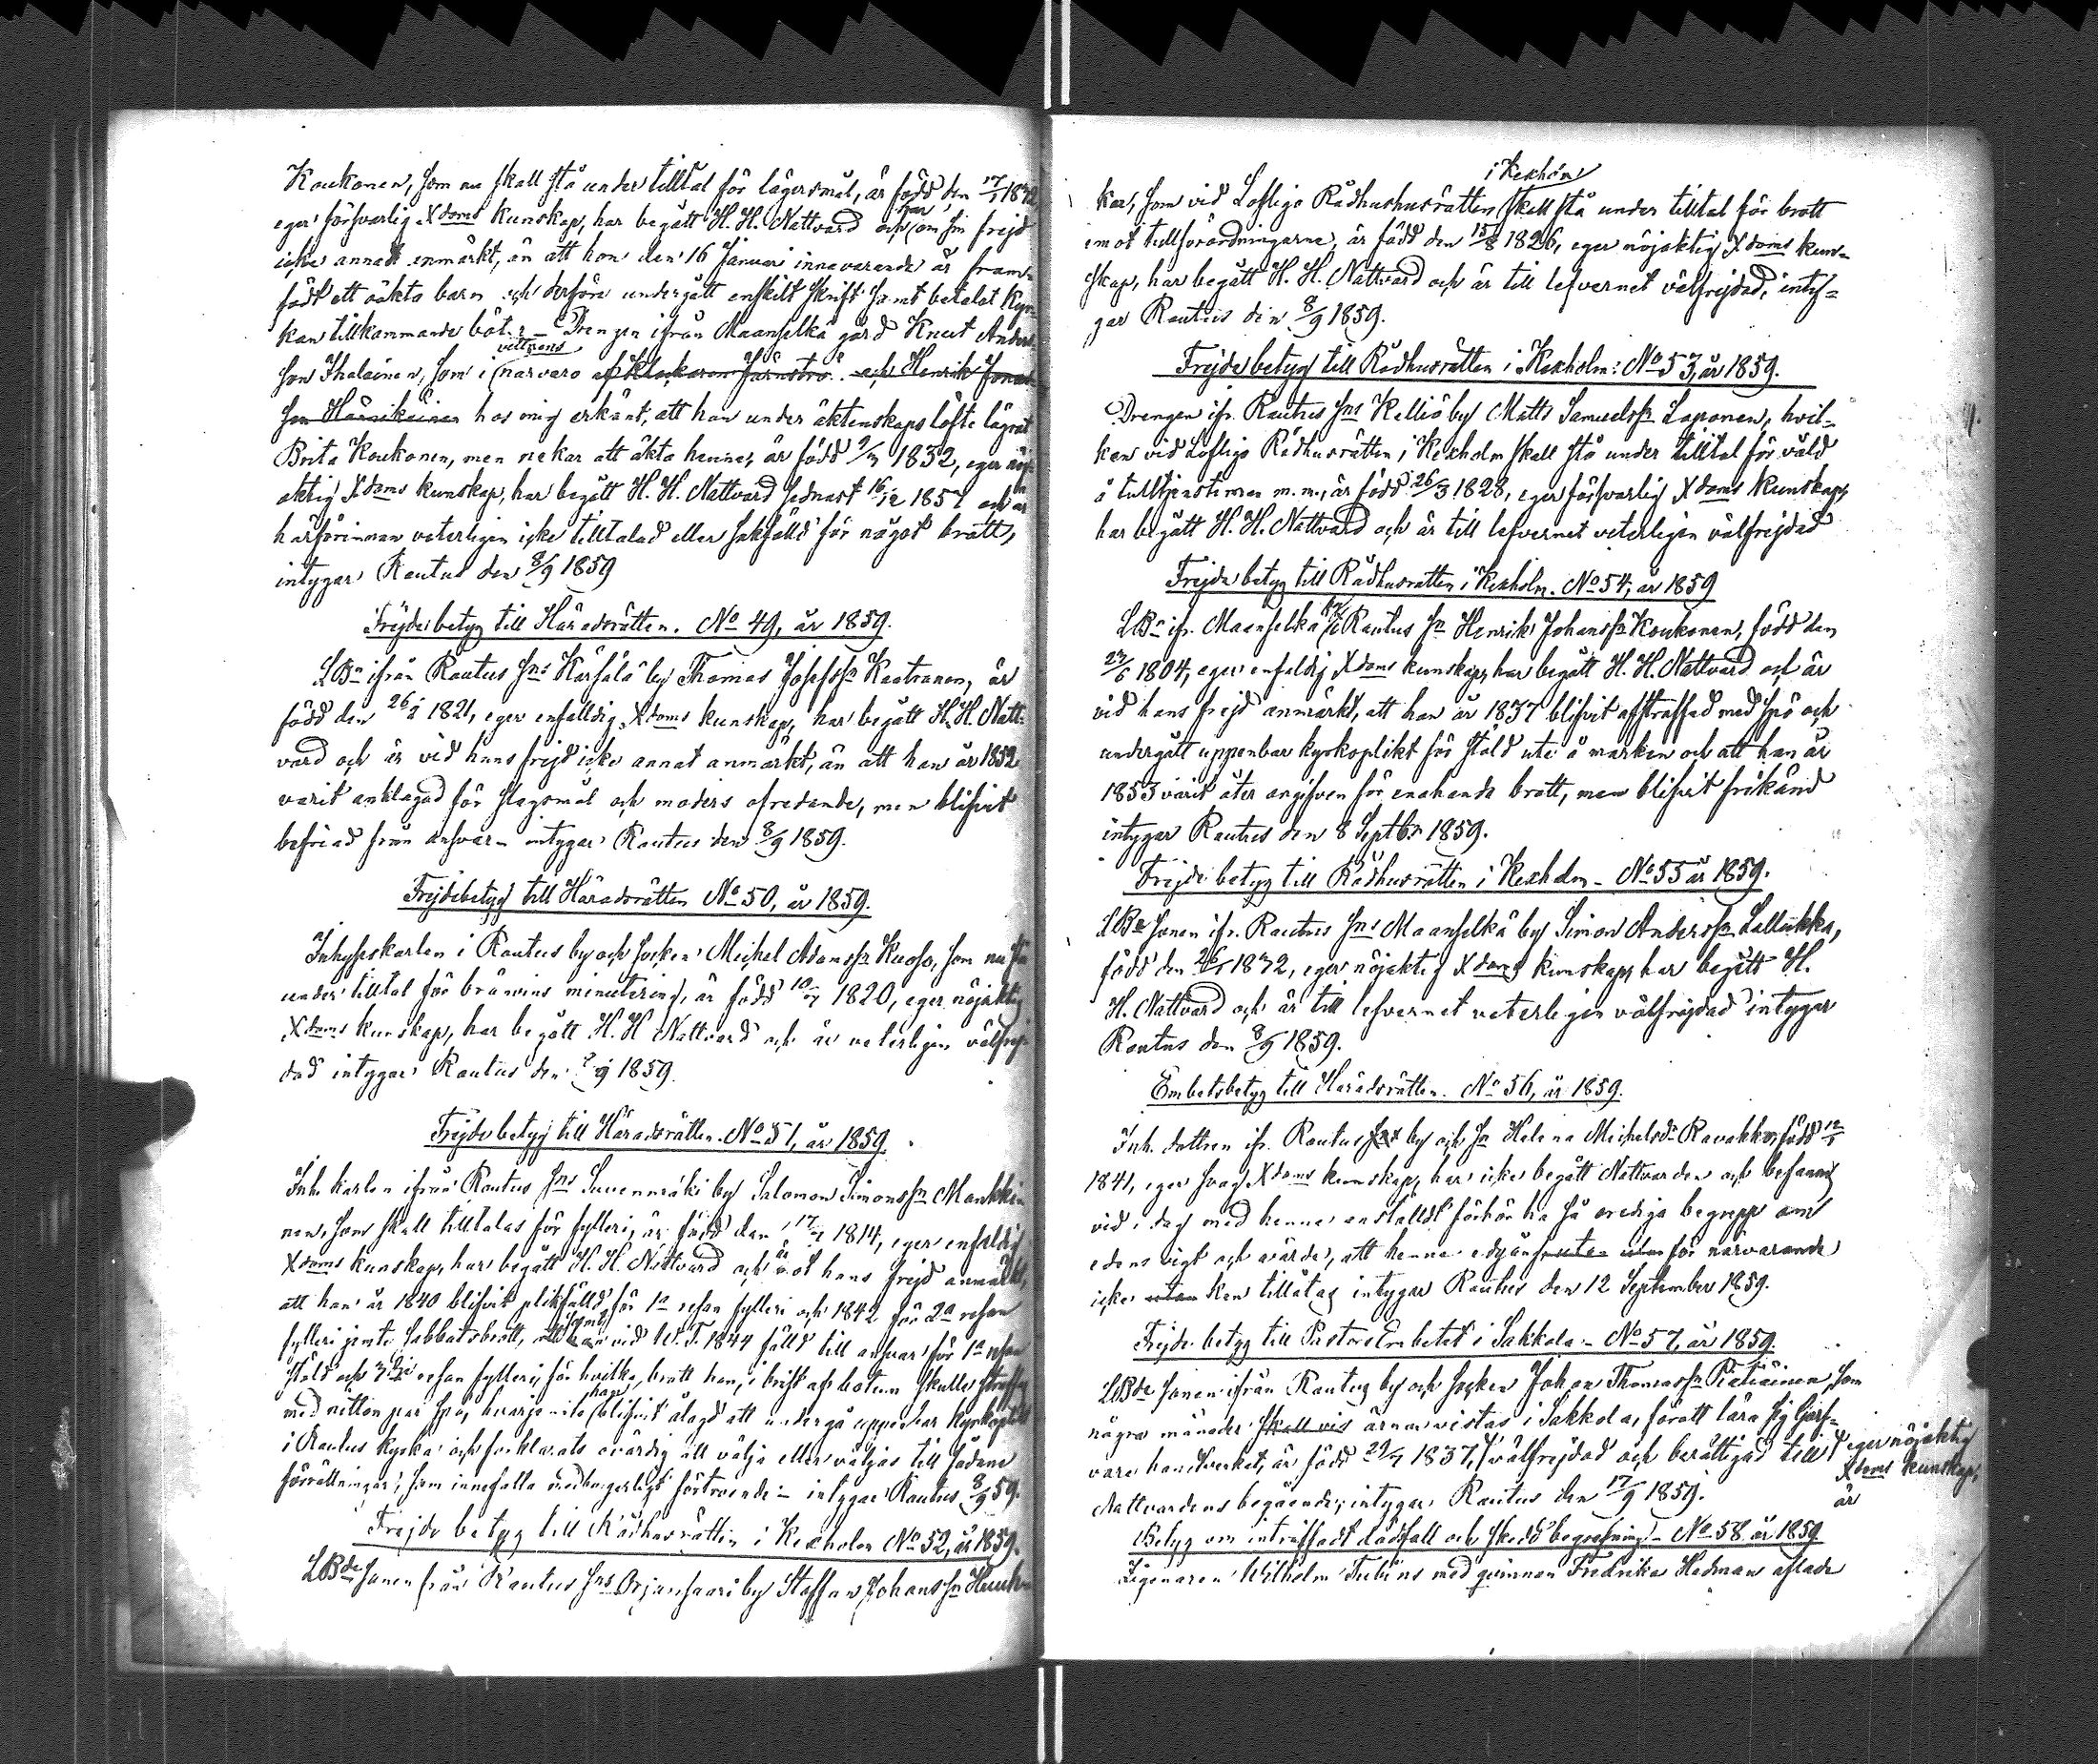 Koukonen, som nu skall stå under tilltal för lägersmål, är född den 17/1 1832,
eger försvarlig Xdoms kunskap, har begått H. H. Nattvard och har om sin frejd
icke annat anmärkt, än att hon den 16 Januari innevarande år fram-
födt ett oäkta barn och derföre undergått enskilt skrift samt betalat kyr-
kan tillkommande böter – Drengen ifrån Maanselkä gård Knut Anders
son Ihalainen, som i vittnens närvaro af Klockaren Järnströ.. och Henrik Jonas
son Härnikäinen hos mig erkänt, att han under äktenskaps löfte lägrat
Brita Koukonen, men nekar att äkta henne, är född 9/3 1832, eger nöj-
aktig Xdoms kunskap, har begått H. H. Nattvard sednast 16/12 1857 och är
härförinnan veterligen icke tilltalad eller sakfälld för något brott,
intygar Rautus den 8/9 1859
Frejdebetyg till Häradsrätten. No 49, år 1859.
LBn ifrån Rautus sns Kärsälä by Thomas Josefssn Kaatranen, är
född den 26/2 1821, eger enfalldig Xdoms kunskap, har begått H. H. Natt-
vard och är vid hans frejd icke annat anmärkt, än att han år 1852
varit anklagad för slagsmål och moders ofredande, men blifvit
befriad från ansvar – intygar Rautus den 8/9 1859.
Frejdebetyg till Häradsrätten No 50, år 1859.
Inhyseskarlen i Rautus by och socken Michel Adamssn Kuosa, som nu stå
under tilltal för bränvins minutering, är född 10/7 1820, eger nöjaktig
Xdoms kunskap, har begått H. H Nattvard och är veterligen välfrej-
dad intygar Rautus den 8/9 1859.
Frejdebetyg till Häradsrätten. No 51, år 1859.
Inh. karlen ifrån Rautus sns Suvenmäki by Salomon Simonssn Mankki
nen, som skall tilltalas för fylleri, är född den 17/2 1814, eger enfaldig
Xdoms kunskap, har begått H. H. Nattvard och är mot hans frejd anmärkt,
att han år 1840 blifvit plikfälld för 1a resan fylleri och 1842 för 2a resan
fylleri jemte Sabbatsbrott, samt att han vid W. T. 1844 fälld till ansvar för 1a resan
stöld och 3dje resan fylleri, för hvilka brott han, i brist af botum skulle straffas
med nitton par spö, hvarjemte han blifvit ålagd att undergå uppenbar kyrkoplikt
i Rautus kyrka och forklarats ovärdig att välja eller väljas till sådane
förrättningar, som innefatta medborgerligt förtroende – intygar Rautus 8/9 59.
Frejde betyg till Rådhusrätten i Kexholm No 52, år 1859.
LBdesonen från Rautus sns Orjansaari by Staffan Johanssn Huuh
kar, som vid Lofliga Rådhushusrätten i Kexholm skall stå under tilltal för brott
emot tullförordningarne, är född den 15/8 1826, eger nöjaktig Xdoms kun-
skap, har begått H. H. Nattvard och är till lefvernet välfrejdad, inty-
gar Rautus den 8/9 1859.
Frejdebetyg till Rådhusrätten i Kexholm: No 53, år 1859.
Drengen ifr. Rautus sns Kelliö by Matts Samuelssn Laponen, hvil-
ken vid Lofliga Rådhusrätten i Kexholm skall stå under tilltal för våld
å tulltjenstemen m. m., är född 26/3 1828, eger försvarlig Xdoms kunskap,
har begått H. H. Nattvard och är till lefvernet veterligen välfrejdad
Frejdebetyg till Rådhusrätten i Kexholm. No 54, år 1859
LBn ifr. Maanselkä Rautus sn Henrik Johanssn Koukonen, född den
23/6 1804, eger enfaldig Xdoms kunskap, har begått H. H. Nattvard och är
vid hans frejd anmärkt, att han år 1837 blifvit afstraffad med spö och
undergått uppenbar kyrkoplikt för stöld ute å marken och att han år
1853 varit åter angifven för enahanda brott, men blifvit frikänd
intygar Rautus den 8 Septbr 1859.
Frejdebetyg till Rådhusrätten i Kexholm – No 55 år 1859.
LBde sonen ifr. Rautus sns Maanselkä by Simon Anderssn Lallukka,
född den 26/1 1832, eger nöjaktig Xdoms kunskap, har begått H.
H. Nattvard och är till lefvernet veterligen välfrejdad intygar
Rautus den 8/9 1859.
Embetsbetyg till Häradsrätten. No 56, år 1859.
Inh. dottren ifr. Rautus by och sn Helena Michelsdr Ravakko, född 12/5
1841, eger svag Xdoms kunskap, har icke begått Nattvarden och befanns
vid i dag med henne anstäldt förhör ha så orediga begrepp om
edens vigt och värde, att henne edgång för närvarande
icke utan kan tillåtas intygar Rautus den 12 September 1859.
Frejde betyg till Pastors Embetet i Sakkola – No 57, år 1859.
LBde sonen ifrån Rautus by och socken Johan Thomassn Pietiäinen, som
några månader skall vis ärnar vistas i Sakkola, föratt lära sig Garf-
vare handtverket, är född 29/7 1837, välfrejdad och berättigad till
eger nöjaktig
Xdoms kunskap,
är
Nattvardens begående, intygar Rautus den 17/9 1859.
Betyg om inträffadt dödsfall och skedd begrafning – No 58 år 1859
Zigenaren Wilhelm med qvinnan Fredrika Hedman aflade